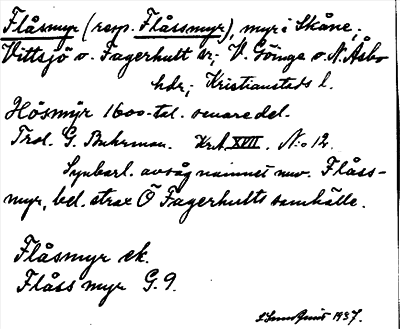 Flåsmyr (resp. Flåssmyr), myr i Skåne;
Vittsjö o. Fagerhult sn; V. Göinge o. N. Åsbo
hdr; Kristianstads l.
Hösmÿr 1600-tal. senare del.
Trol. G. Buhrman. KrA XVII. N:o 12.
Synbarl. avsåg namnet nuv. Flåss-
myr, bel. strax Ö Fagerhults samhälle.
Flåsmyr ek.
Flåss myr G. 9.
1937.